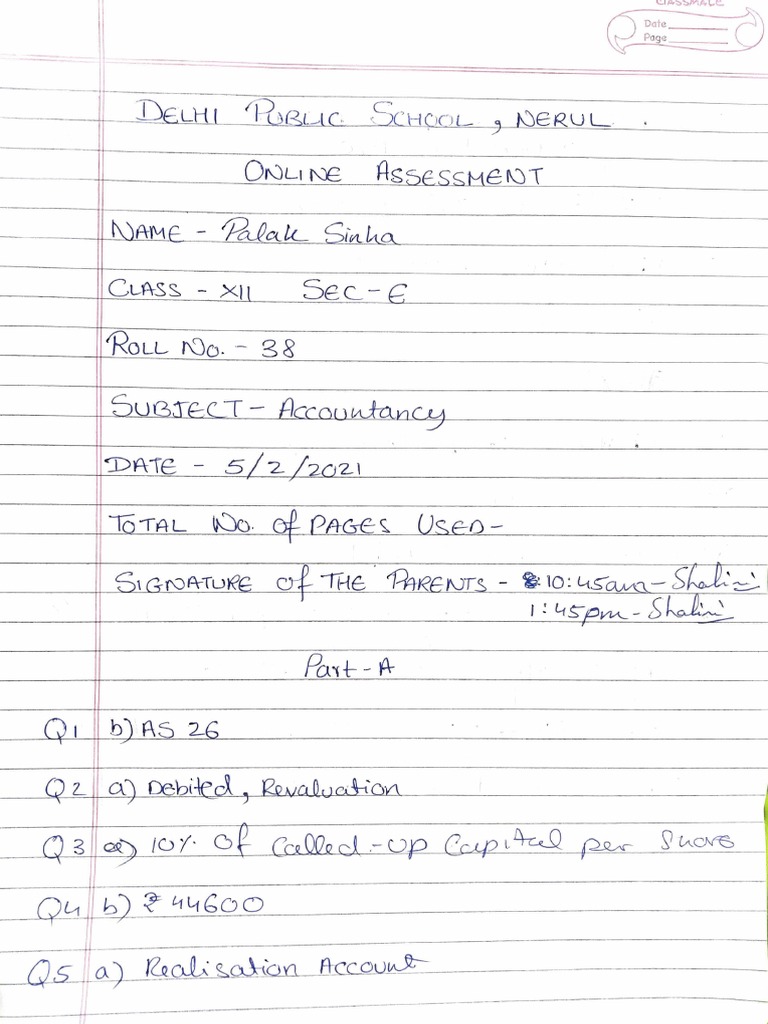 CLASSMATE
Date
Page
DELHI PUBLIC SCHOOL, NERUL.
ONLINE ASSESSMENT
NAME - Palak Sinha
CLASS - XII SEC - E
ROLL No. - 38
SUBJECT - Accountancy
DATE - 5/2/2021
TOTAL No. of PAGES USED -
SIGNATURE of THE PARENTS - 10:45am - Shalini
1:45pm - Shalini
Part - A
Q1 b) AS 26
Q2 a) Debited, Revaluation
Q3 a) 10% Of Called-up Capital per Share
Q4 b) ₹ 44600
Q5 a) Realisation Account